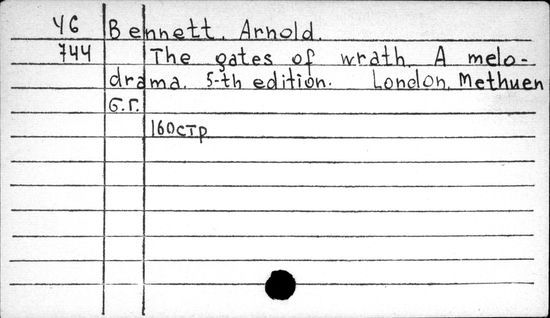 У6 Bennett, Arnold.
744 The gates of wrath. A melo-
drama. 5-th edition. London, Methuen
б.г.
160стр